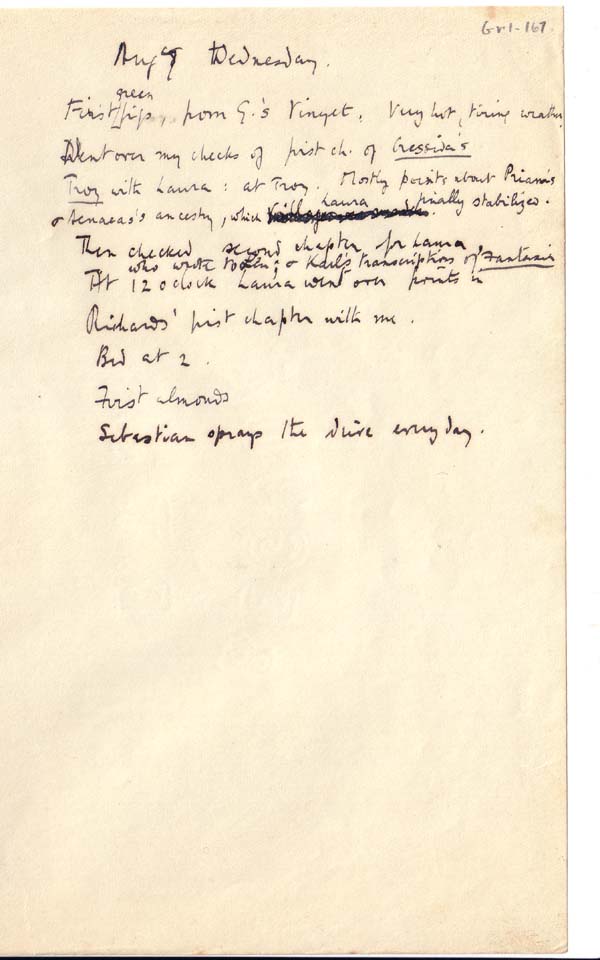 Gr1-167
Wednesday.
First green figs, from G.'s Vinyet. Very hot, tiring weather.
Went over my checks of first ch. of Cressida's
Troy with Laura: at Troy. Mostly points about Priam's
& Aeneas's ancestry, which Laura finally stabilized.
Then checked second chapter for Laura,
who wrote to Len; & Karl's transcriptions of Fantasia
At 12 o'clock Laura went over points in
Richards' first chapter with me.
Bed at 2.
First almonds
Sebastian sprays the drive every day.